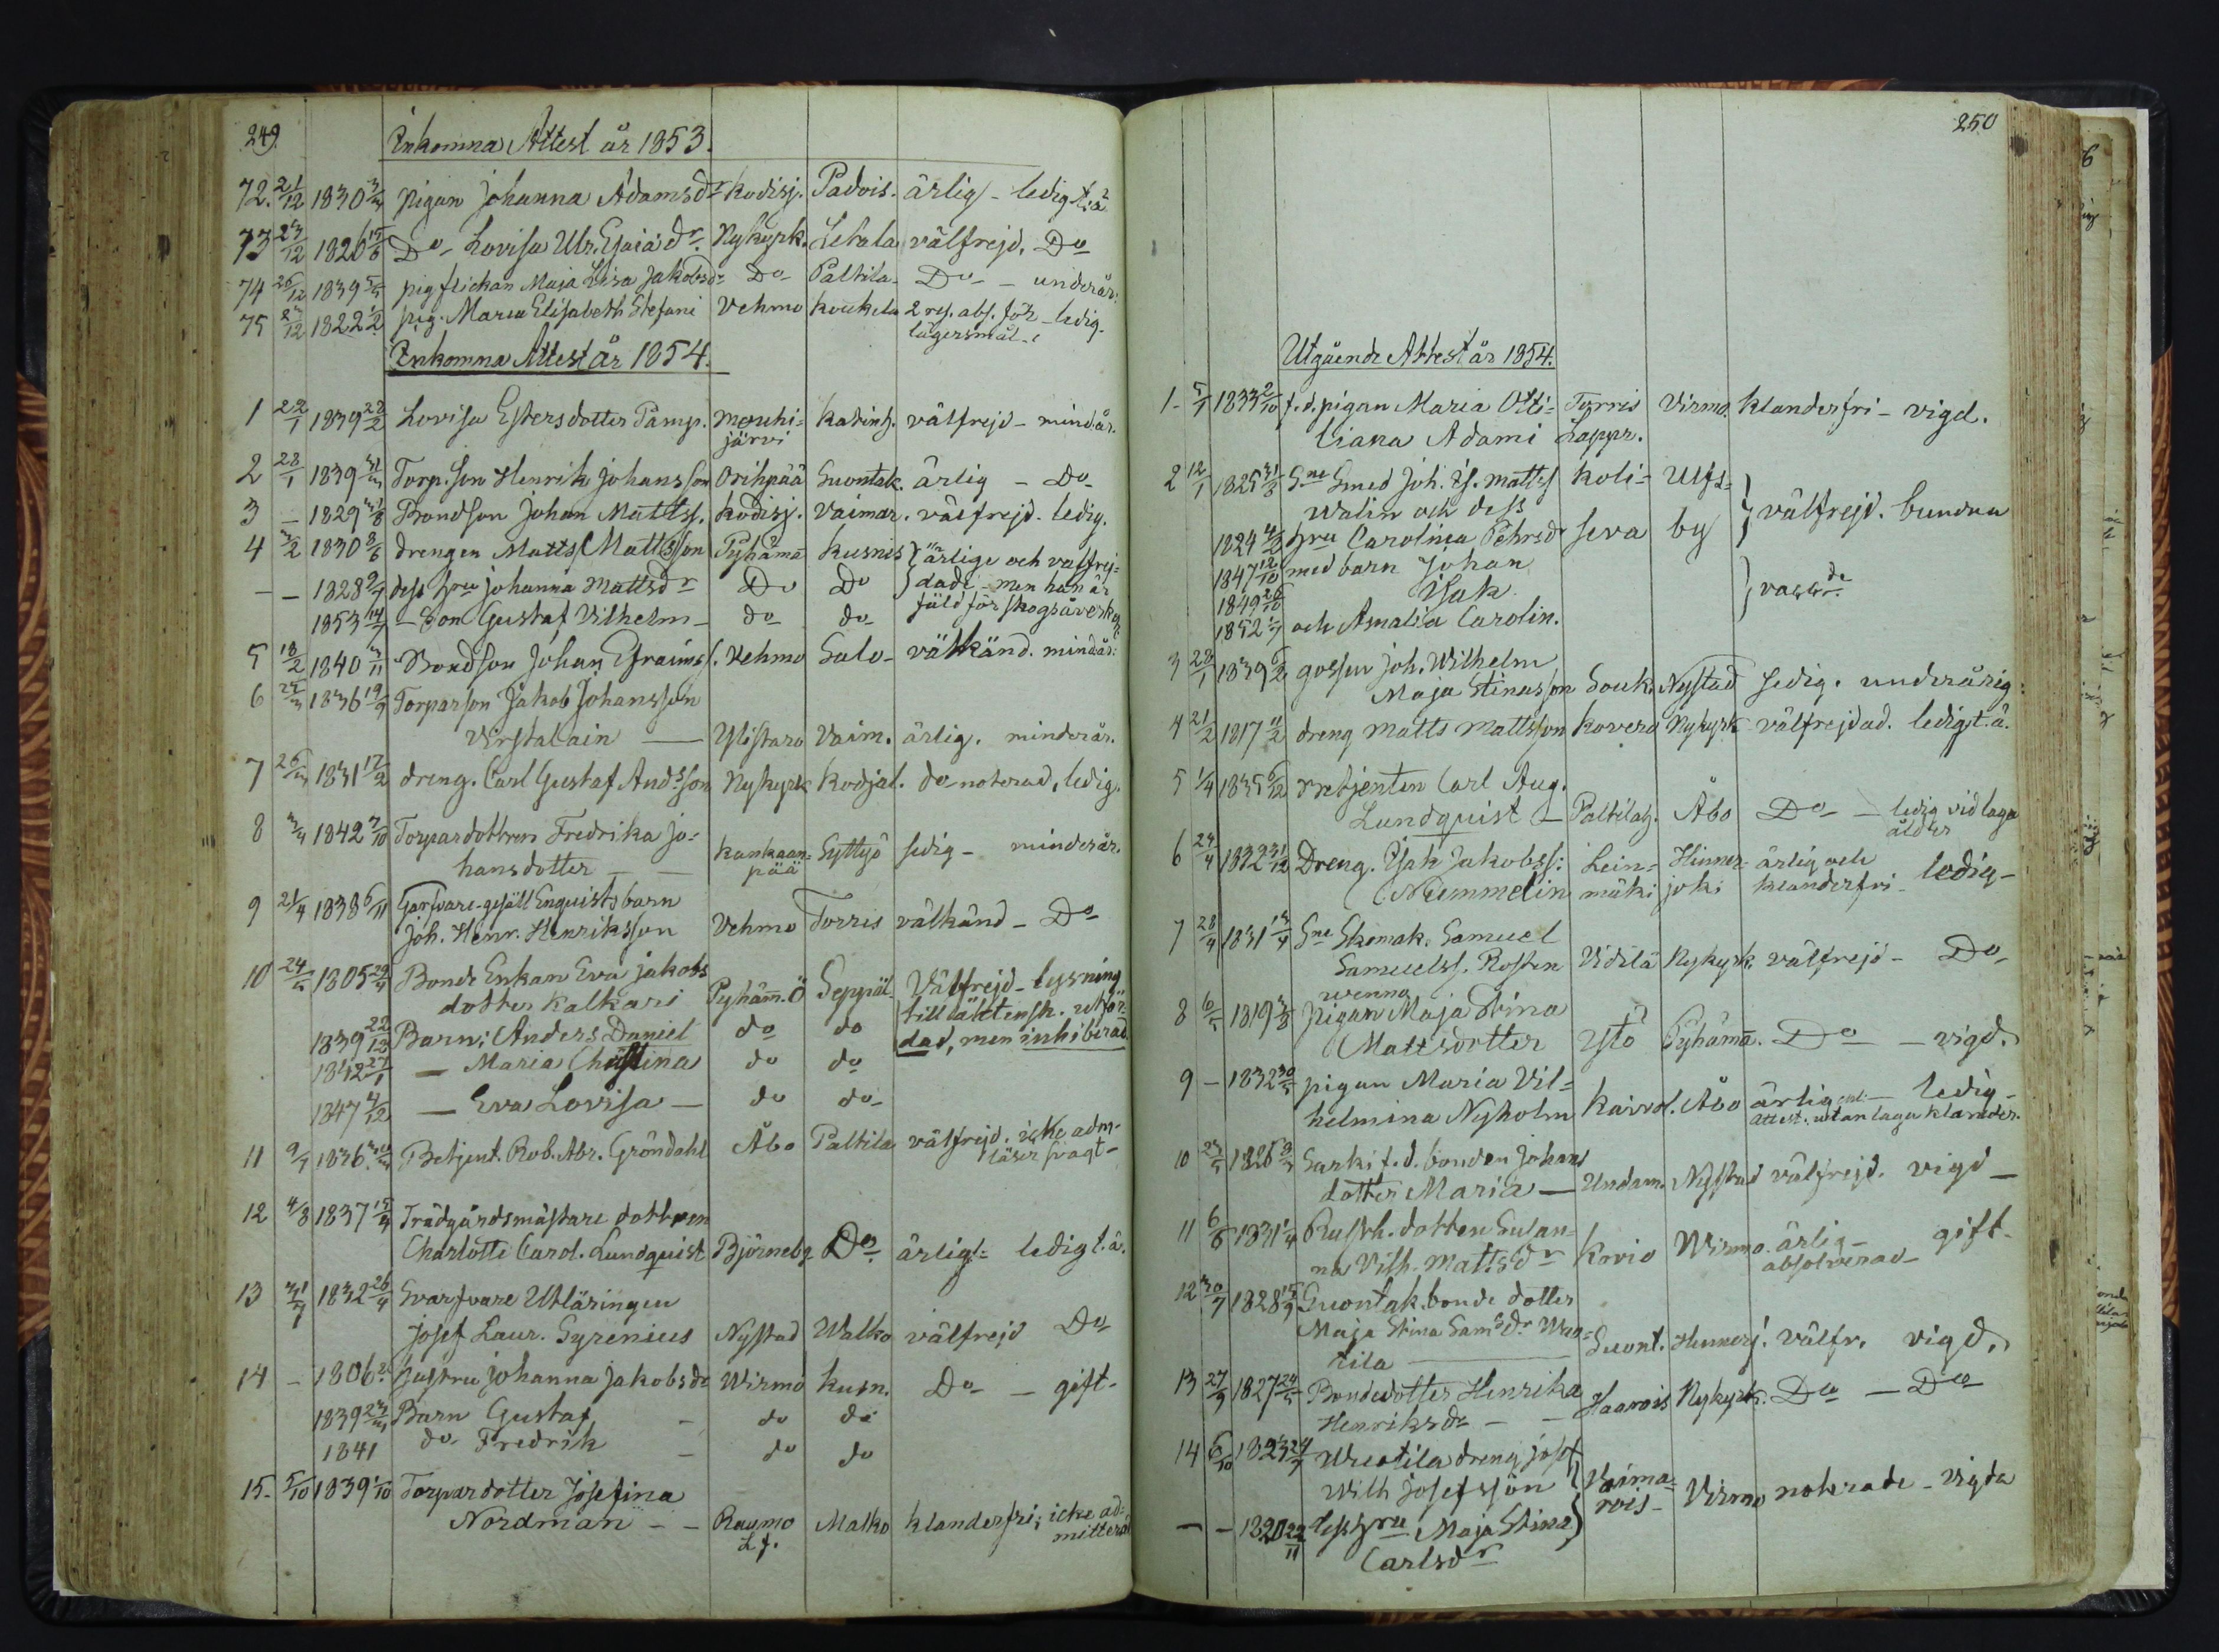 249.
Inkomna Attest år 1853.
72. 21/12 1830 3/3 pigan Johanna Adamsdr Kodisj. Padois. ärlig - ledig t. ä.
73 23/12 1826 15/6 Do Lovisa Ulr. Esaiædr. Nykyrk. Letala välfrejd. Do
74 26/12 1839 5/5 pigflickan Maja Lisa Jakobsdr Do Paltila Do - underår.
75 27/12 1822 1/2 pig. Maria Elisabeth Stefani Vehmo Koukela 2 res. abs. för ledig.
lägersmål.
Inkomna Attest år 1854.
1 22/1 1839 22/2 Lovisa Estersdotter Pamp. Mouhi- Katinh. välfrejd - mind.år.
järvi
2 28/1 1839 31/3 Torp.son Henrik Johansson Orihpää Suontak. ärlig - Do
3 - 1829 31/8 Bondson Johan Mattss. Kodisj. Vaimar. välfrejd. ledig.
4 3/2 1830 8/6 drengen Matts Mattsson Pyhämä Kusnis ärlige och välfrej-
- - 1828 9/7 dess hru Johanna Mattsdr Do Do dade - men han är
1853 14/7 - Son Gustaf Vilhelm - do do fäld för skogsåverkan
5 18/2 1840 3/11 Bondson Johan Efraimss. Vehmo Salo - välkänd. mind.år.
6 25/3 1836 19/9 Torparson Jakob Johansson
Virstalain - Ylistaro Vaim. ärlig. minderår.
7 26/3 1831 17/2 dreng. Carl Gustaf Andsson Nykyrk Kodjal. do noterad, ledig.
8 3/4 1842 7/10 Torpardottren Fredrika Jo-
hansdotter - - Kankaan- Syttyö sedig - minderår.
pää
9 21/4 1838 6/11 Garfvare-gesäll Enquists barn
Joh. Henr. Henriksson Vehmo Torris välkänd - Do
10 24/5 1805 29/4 Bonde Enkan Eva Jakobs
dotter Kalkari Pyhäm. Ö Seppäl. Välfrejd - lysning
till äktensk. utfär-
1839 22/12 Barn: Anders Daniel do do dad, men inhiberad
1842 27/1 - Maria Christina do do
1847 4/12 - Eva Lovisa - do do
11 9/7 1836 30/3 Betjent. Rob. Abr. Gröndahl Åbo Paltila välfrejd. icke adm.
läser svagt -
12 4/8 1837 15/4 Trädgårdsmästare dottren
Charlotte Carol. Lundquist Björnebg Do ärlig - ledig t. ä.
13 31/7 1832 26/4 Svarfvare Utläringen
Josef Laur. Gyrenius Nystad Walko välfrejd Do
14 - 1806 Hustru Johanna Jakobsdr Wirmo Kusn. Do - gift -
1839 23/3 Barn Gustaf - do do
1841 do Fredrik - do do
15. 5/10 1839 1/10 Torpardotter Josefina
Nordman - - Raumo Malko klanderfri; icke ad-
L.f. mitterad
250
Utgående Attest år 1854.
1. 5/1 1833 2/10 f.d. pigan Maria Otti- Tyrris Virmo. klanderfri - vigd.
liana Adami Lappr.
2 12/1 1825 31/3 Sne Smed Joh. Is. Mattss Koli- Ulfs-
Walin och dess välfrejd. bundna
1824 4/2 hru Carolina Pehrsdr seva by
1847 12/10 med barn Johan
1849 26/10 Isak vacc.de
1852 1/7 och Amalia Carolin.
3 28/1 1839 6/2 gossen Joh. Wilhelm
Maja Stinasson Souk. Nystad sedig. underårig.
4 21/2 1817 11/2 dreng Matts Mattsson Kovero Nykyrk välfrejdad. ledig t. ä.
5 1/4 1835 6/12 Betjenten Carl Aug.
Lundquist - Paltilag. Åbo Do - ledig vid laga
ålder
6 24/4 1832 31/12 Dreng. Isak Jakobss: Lein- Hinner- ärlig och ledig -
Nummelin mäki joki klanderfri -
7 28/4 1831 13/4 Sne Skomak. Samuel
Samuelss. Rosten Vidilä Nykyrk. välfrejd - Do
8 6/5 1819 3/8 pigan Maja Stina
Mattsdotter Ystö Pyhämä. Do - vigd.
9 - 1832 30/5 pigan Maria Vil-
helmina Nyholm Kairol. Åbo ärlig enl. - ledig -
attest. utan laga klander.
10 25/5 1826 Sarki f.d. bonden Johans
dotter Maria - Undam. Nystad välfrejd. vigd -
11 6/6 1831 1/4 Rusth. dotter Susan-
na Vilh. Mattsdr Korvio Wirmo. ärlig - gift -
absolverad -
12 30/7 1828 15/9 Suontak. bonde dotter
Maja Stina Samsdr Wan-
tila - Suont. Hennerj. välfr. vigd.
13 27/9 1827 24/5 Bondedotter Henrika
Henriksdr - - Haarois Nykyrk. Do - Do
14 6/10 1823 24/7 Weotila dreng Josef
Wilh Josefsson Vaima- Virmo noterade - vigda
rois -
- - 1820 22/11 dess hru Maja Stina
Carlsdr